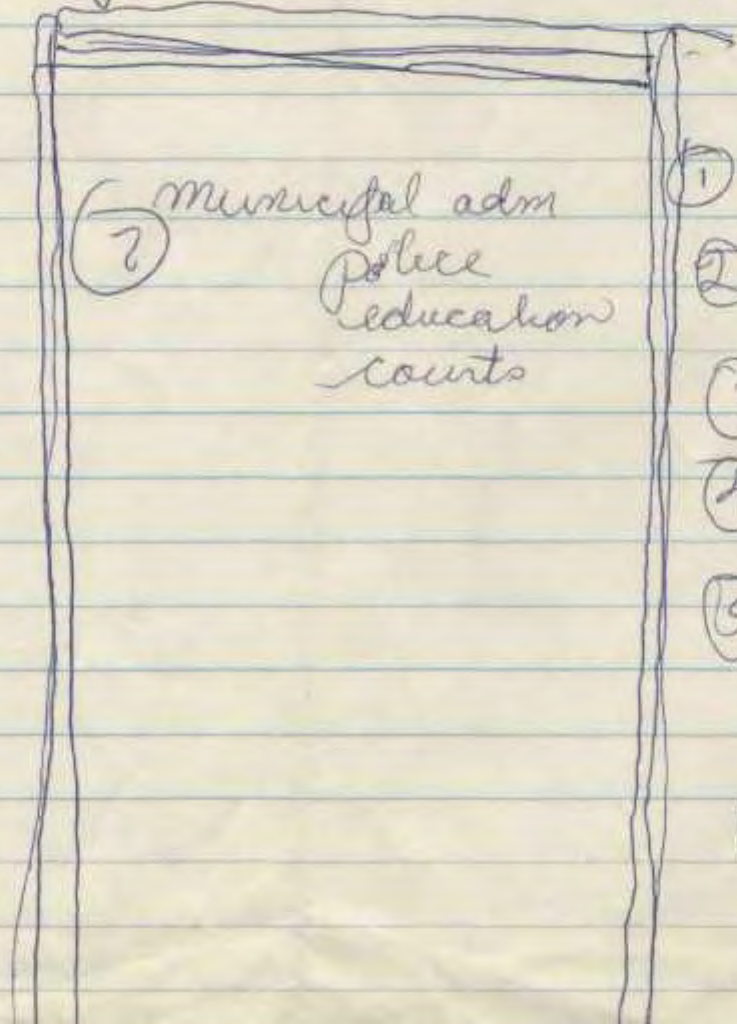 municipal adm
police
education
courts
1
2